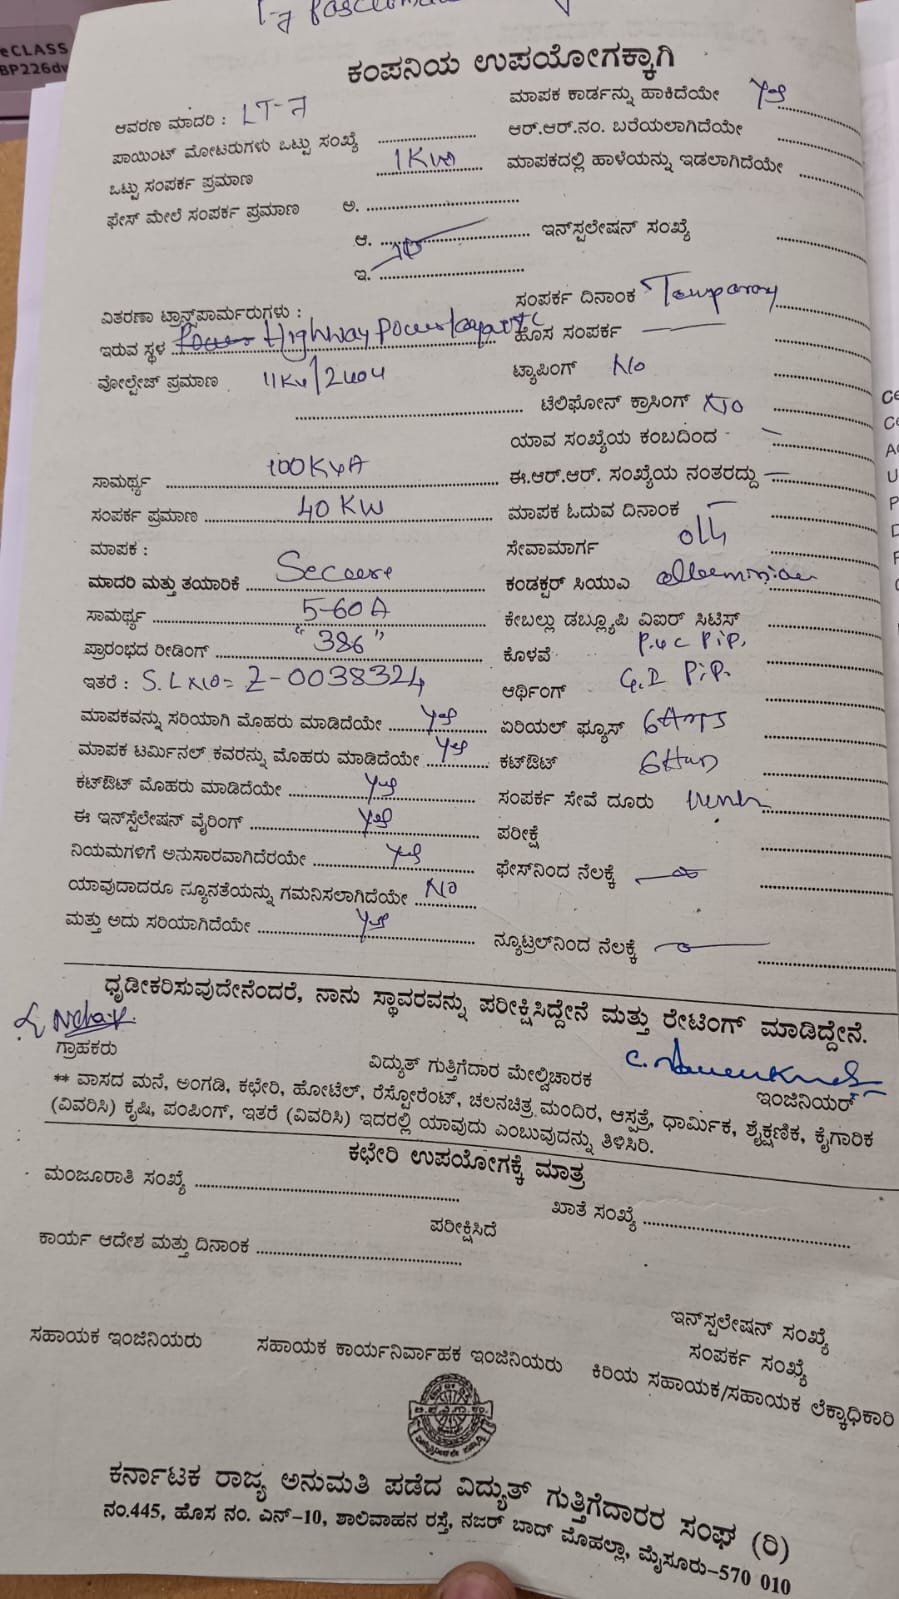 eCLASS
BP226dw
ಕಂಪನಿಯ ಉಪಯೋಗಕ್ಕಾಗಿ
ಆವರಣ ಮಾದರಿ : LT-7
ಮಾಪಕ ಕಾರ್ಡನ್ನು ಹಾಕಿದೆಯೇ Yes
ಪಾಯಿಂಟ್ ಮೋಟರುಗಳು ಒಟ್ಟು ಸಂಖ್ಯೆ
ಆರ್.ಆರ್.ನಂ. ಬರೆಯಲಾಗಿದೆಯೇ
ಒಟ್ಟು ಸಂಪರ್ಕ ಪ್ರಮಾಣ 1KW
ಮಾಪಕದಲ್ಲಿ ಹಾಳೆಯನ್ನು ಇಡಲಾಗಿದೆಯೇ
ಫೇಸ್ ಮೇಲೆ ಸಂಪರ್ಕ ಪ್ರಮಾಣ ಅ.
ಆ. ಇನ್‌ಸ್ಪಲೇಷನ್ ಸಂಖ್ಯೆ
ಇ.
ವಿತರಣಾ ಟ್ರಾನ್ಸ್‌ಪಾರ್ಮರುಗಳು :
ಸಂಪರ್ಕ ದಿನಾಂಕ Temporary
ಇರುವ ಸ್ಥಳ Highway
ಹೊಸ ಸಂಪರ್ಕ
ವೋಲ್ಟೇಜ್ ಪ್ರಮಾಣ 11KV/
ಟ್ಯಾಪಿಂಗ್ No
ಟೆಲಿಫೋನ್ ಕ್ರಾಸಿಂಗ್ No
ಯಾವ ಸಂಖ್ಯೆಯ ಕಂಬದಿಂದ -
ಸಾಮರ್ಥ್ಯ 100KVA
ಈ.ಆರ್.ಆರ್. ಸಂಖ್ಯೆಯ ನಂತರದ್ದು —
ಸಂಪರ್ಕ ಪ್ರಮಾಣ 40 KW
ಮಾಪಕ ಓದುವ ದಿನಾಂಕ —
ಮಾಪಕ :
ಸೇವಾಮಾರ್ಗ OH
ಮಾದರಿ ಮತ್ತು ತಯಾರಿಕೆ Secure
ಕಂಡಕ್ಟರ್ ಸಿಯುಎ
ಸಾಮರ್ಥ್ಯ 5-60A
ಕೇಬಲ್ಲು ಡಬ್ಲ್ಯೂಪಿ ವಿಐರ್ ಸಿಟಿಸ್
ಪ್ರಾರಂಭದ ರೀಡಿಂಗ್ "386"
ಕೊಳವೆ P.V.C PiP.
ಇತರೆ : S.L No= Z-0038324
ಆರ್ಥಿಂಗ್ G.I PiP.
ಮಾಪಕವನ್ನು ಸರಿಯಾಗಿ ಮೊಹರು ಮಾಡಿದೆಯೇ Yes
ಏರಿಯಲ್ ಫ್ಯೂಸ್
ಮಾಪಕ ಟರ್ಮಿನಲ್ ಕವರನ್ನು ಮೊಹರು ಮಾಡಿದೆಯೇ Yes
ಕಟ್‌ಔಟ್
ಕಟ್‌ಔಟ್ ಮೊಹರು ಮಾಡಿದೆಯೇ Yes
ಸಂಪರ್ಕ ಸೇವೆ ದೂರು
ಈ ಇನ್‌ಸ್ಪೆಲೇಷನ್ ವೈರಿಂಗ್ Yes
ಪರೀಕ್ಷೆ
ನಿಯಮಗಳಿಗೆ ಅನುಸಾರವಾಗಿದೆರಯೇ Yes
ಫೇಸ್‌ನಿಂದ ನೆಲಕ್ಕೆ
ಯಾವುದಾದರೂ ನ್ಯೂನತೆಯನ್ನು ಗಮನಿಸಲಾಗಿದೆಯೇ No
ಮತ್ತು ಅದು ಸರಿಯಾಗಿದೆಯೇ Yes
ನ್ಯೂಟ್ರಲ್‌ನಿಂದ ನೆಲಕ್ಕೆ
ಧೃಡೀಕರಿಸುವುದೇನೆಂದರೆ, ನಾನು ಸ್ಥಾವರವನ್ನು ಪರೀಕ್ಷಿಸಿದ್ದೇನೆ ಮತ್ತು ರೇಟಿಂಗ್ ಮಾಡಿದ್ದೇನೆ.
ಗ್ರಾಹಕರು
ವಿದ್ಯುತ್ ಗುತ್ತಿಗೆದಾರ ಮೇಲ್ವಿಚಾರಕ
ಇಂಜಿನಿಯರ್
** ವಾಸದ ಮನೆ, ಅಂಗಡಿ, ಕಛೇರಿ, ಹೋಟೆಲ್, ರೆಸ್ಟೋರೆಂಟ್, ಚಲನಚಿತ್ರ ಮಂದಿರ, ಆಸ್ಪತ್ರೆ, ಧಾರ್ಮಿಕ, ಶೈಕ್ಷಣಿಕ, ಕೈಗಾರಿಕ
(ವಿವರಿಸಿ) ಕೃಷಿ, ಪಂಪಿಂಗ್, ಇತರೆ (ವಿವರಿಸಿ) ಇದರಲ್ಲಿ ಯಾವುದು ಎಂಬುವುದನ್ನು ತಿಳಿಸಿರಿ.
ಕಛೇರಿ ಉಪಯೋಗಕ್ಕೆ ಮಾತ್ರ
ಮಂಜೂರಾತಿ ಸಂಖ್ಯೆ
ಖಾತೆ ಸಂಖ್ಯೆ
ಪರೀಕ್ಷಿಸಿದೆ
ಕಾರ್ಯ ಆದೇಶ ಮತ್ತು ದಿನಾಂಕ
ಇನ್‌ಸ್ಪಲೇಷನ್ ಸಂಖ್ಯೆ
ಸಂಪರ್ಕ ಸಂಖ್ಯೆ
ಸಹಾಯಕ ಇಂಜಿನಿಯರು ಸಹಾಯಕ ಕಾರ್ಯನಿರ್ವಾಹಕ ಇಂಜಿನಿಯರು ಕಿರಿಯ ಸಹಾಯಕ/ಸಹಾಯಕ ಲೆಕ್ಕಾಧಿಕಾರಿ
ಕರ್ನಾಟಕ ರಾಜ್ಯ ಅನುಮತಿ ಪಡೆದ ವಿದ್ಯುತ್ ಗುತ್ತಿಗೆದಾರರ ಸಂಘ (ರಿ)
ನಂ.445, ಹೊಸ ನಂ. ಎನ್-10, ಶಾಲಿವಾಹನ ರಸ್ತೆ, ನಜರ್ ಬಾದ್ ಮೊಹಲ್ಲಾ, ಮೈಸೂರು-570 010